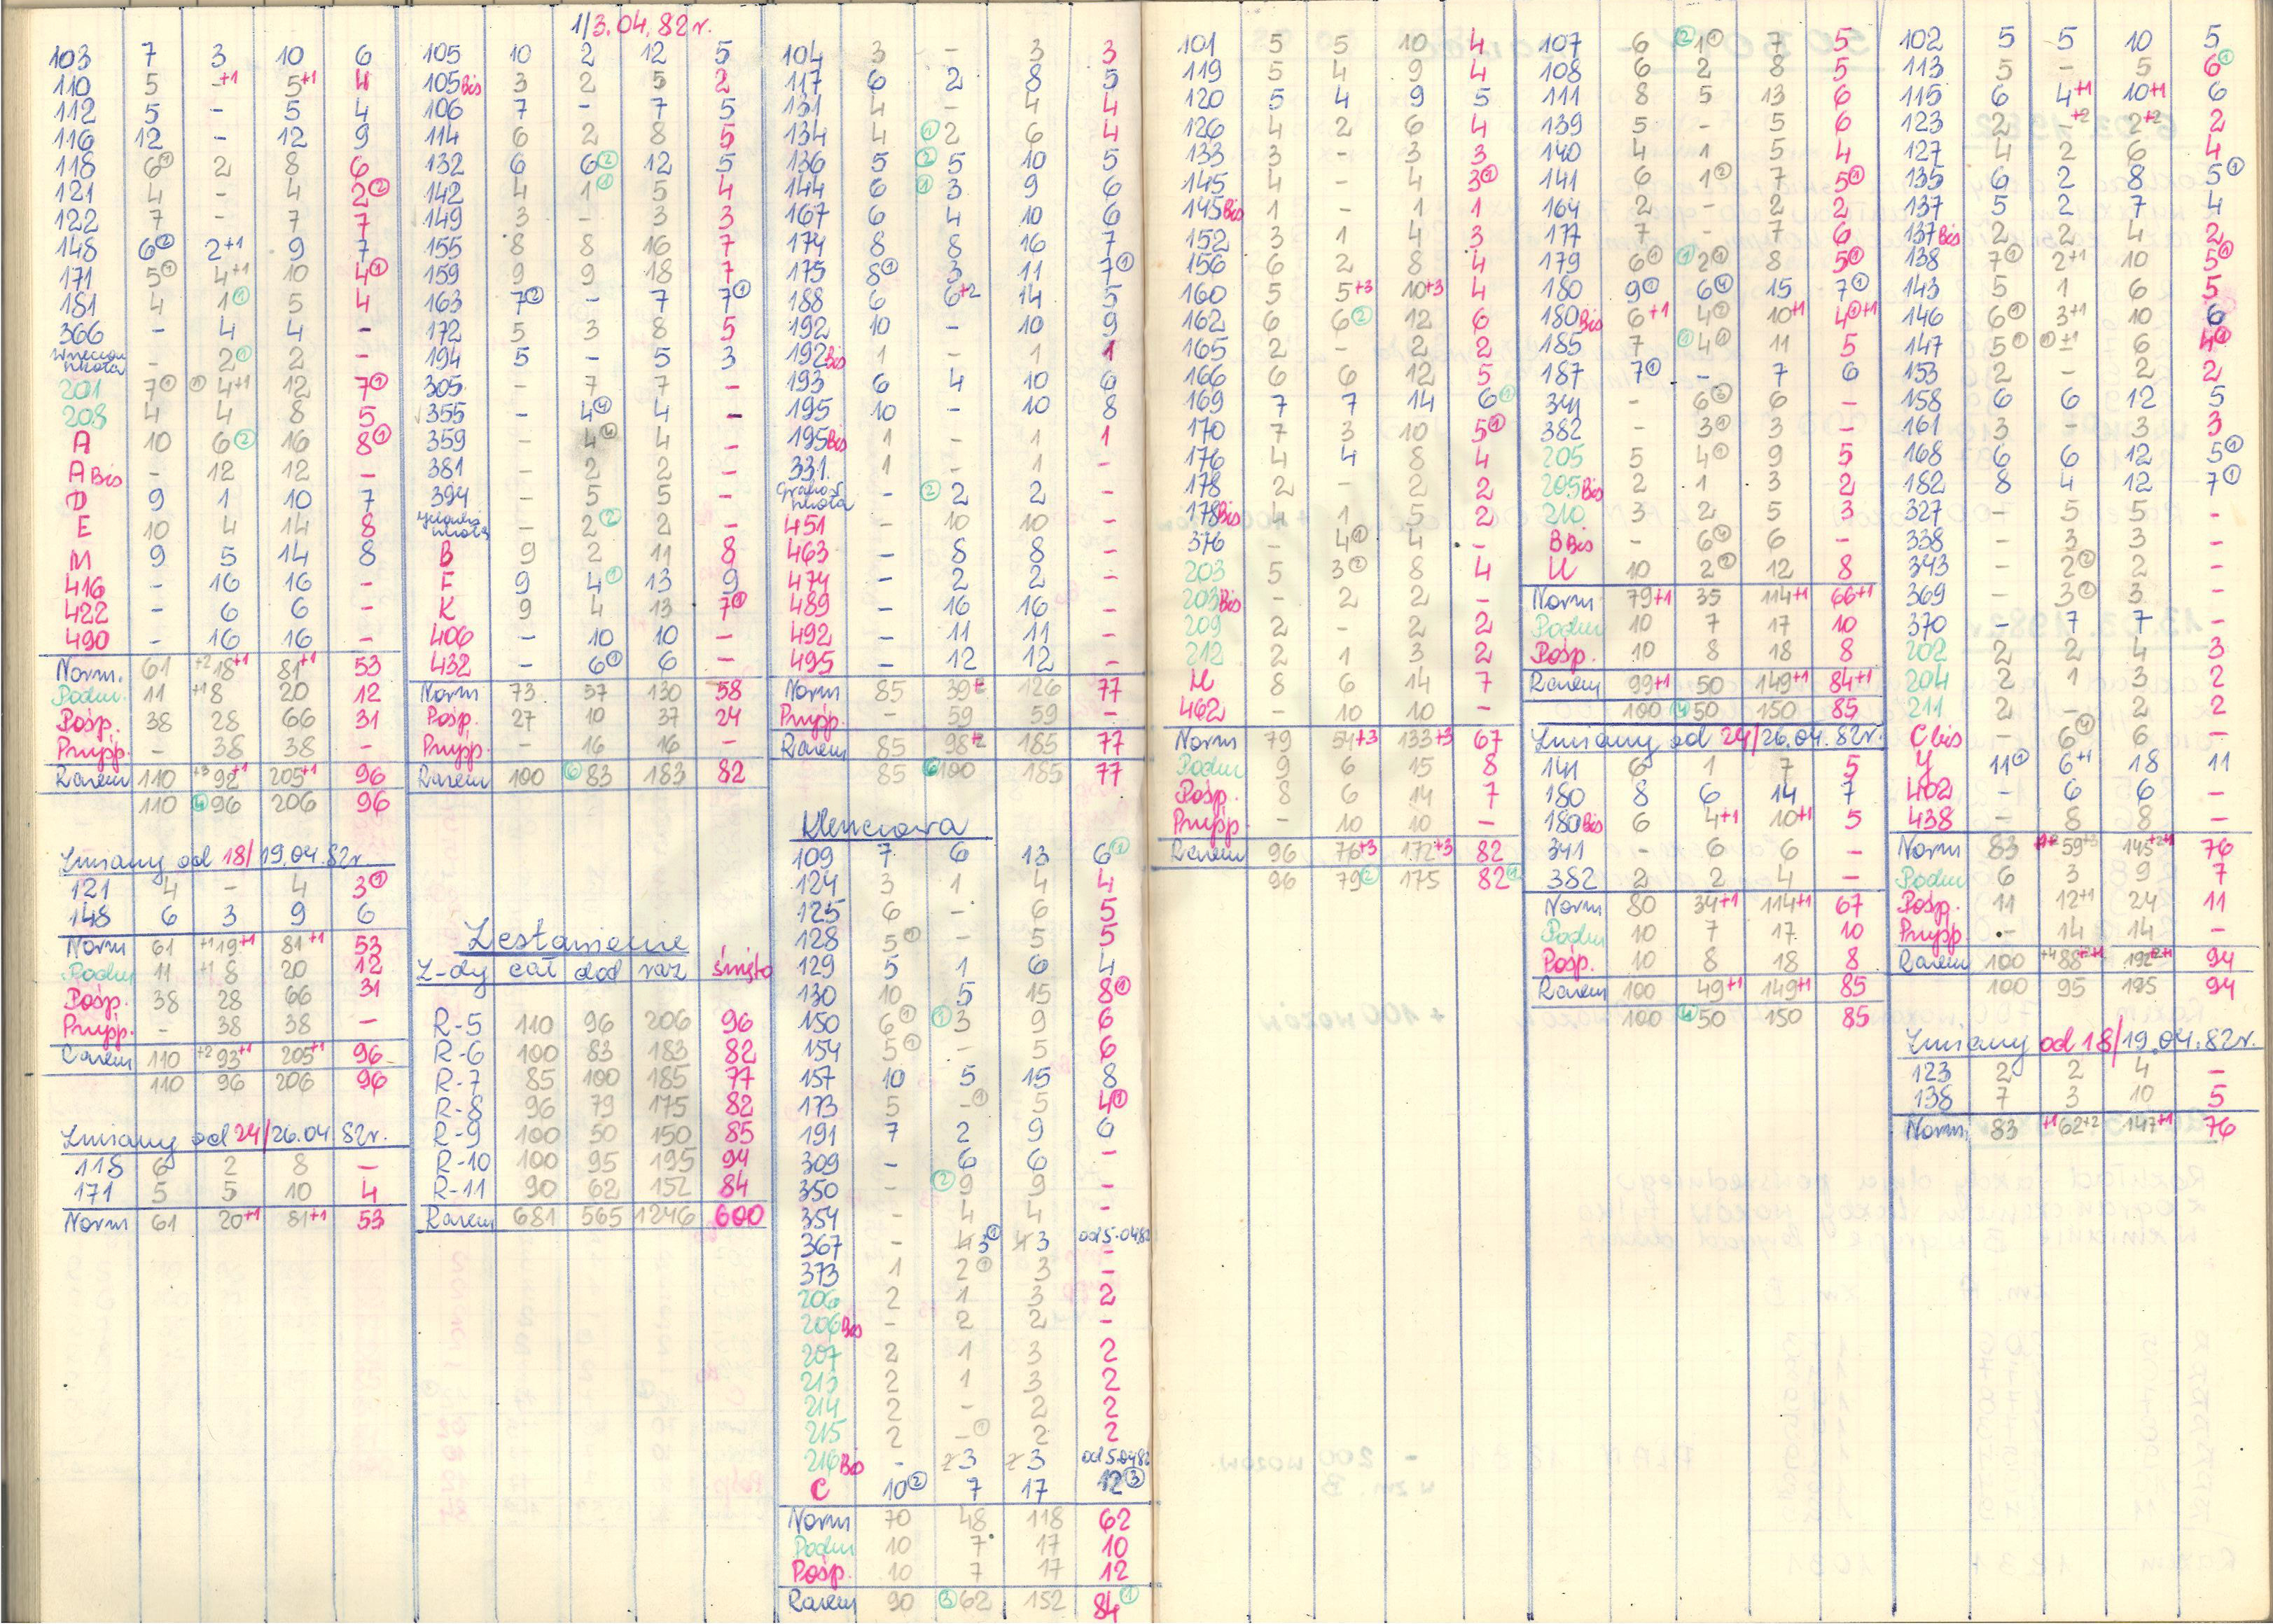 1/3.04.82r.
103 7 3 10 6
110 5 -+1 5+1 4
112 5 - 5 4
116 12 - 12 9
118 6① 2 8 6
121 4 - 4 2②
122 7 - 7 7
148 6② 2+1 9 7
171 5① 4+1 10 4①
181 4 1① 5 4
366 - 4 4 -
- 2① 2 -
201 7① ①4+1 12 7①
208 4 4 8 5
A 10 6② 16 8①
A Bis - 12 12 -
D 9 1 10 7
E 10 4 14 8
M 9 5 14 8
416 - 16 16 -
422 - 6 6 -
490 - 16 16 -
Norm. 61 +2 18+1 81+1 53
Podm. 11 +1 8 20 12
Pośp. 38 28 66 31
Przysp. - 38 38 -
Razem 110 +3 92+1 205+1 96
110 ④96 206 96
Zmiany od 18/19.04.82r.
121 4 - 4 3①
148 6 3 9 6
Norm 61 +1 19+1 81+1 53
Podm 11 +1 8 20 12
Pośp. 38 28 66 31
Przysp. - 38 38 -
Razem 110 +2 93+1 205+1 96
110 96 206 96
Zmiany od 24/26.04.82r.
118 6 2 8 -
171 5 5 10 4
Norm 61 20+1 81+1 53
105 10 2 12 5
105Bis 3 2 5 2
106 7 - 7 5
114 6 2 8 5
132 6 6② 12 5
142 4 1① 5 4
149 3 - 3 3
155 8 8 16 7
159 9 9 18 7
163 7② - 7 7①
172 5 3 8 5
194 5 - 5 3
305 - 7 7 -
355 - 4④ 4 -
359 - 4④ 4 -
381 - 2 2 -
394 - 5 5 -
- 2② 2 -
B 9 2 11 8
F 9 4① 13 9
K 9 4 13 7①
406 - 10 10 -
432 - 6① 6 -
Norm 73 57 130 58
Pośp. 27 10 37 24
Przysp. - 16 16 -
Razem 100 ⑥83 183 82
Zestawienie
Z-dy cał dod raz święto
R-5 110 96 206 96
R-6 100 83 183 82
R-7 85 100 185 77
R-8 96 79 175 82
R-9 100 50 150 85
R-10 100 95 195 94
R-11 90 62 152 84
Razem 681 565 1246 600
104 3 - 3 3
117 6 2 8 5
131 4 - 4 4
134 4 ①2 6 4
136 5 ②5 10 5
144 6 ①3 9 6
167 6 4 10 6
174 8 8 16 7
175 8① 3 11 7①
188 6 6+2 14 5
192 10 - 10 9
192Bis 1 - 1 1
193 6 4 10 6
195 10 - 10 8
195Bis 1 - 1 1
331. 1 - 1 -
- ②2 2 -
451 - 10 10 -
463 - 8 8 -
474 - 2 2 -
489 - 16 16 -
492 - 11 11 -
495 - 12 12 -
Norm 85 39+2 126 77
Przysp. - 59 59 -
Razem 85 98+2 185 77
85 ⑥100 185 77
Kleszczowa
109 7 6 13 6①
124 3 1 4 4
125 6 - 6 5
128 5① - 5 5
129 5 1 6 4
130 10 5 15 8①
150 6① ①3 9 6
154 5① - 5 6
157 10 5 15 8
173 5 -① 5 4①
191 7 2 9 6
309 - 6 6 -
350 - ②9 9 -
354 - 4 4 -
367 - 4 3① 4 3 od 5.0482
373 1 2① 3 -
206 2 1 3 2
206Bis - 2 2 -
207 2 1 3 2
213 2 1 3 2
214 2 - 2 2
215 2 -① 2 2
216Bis - 2 3 2 3 od 5.0482
C 10② 7 17 12③
Norm 70 48 118 62
Podm 10 7 17 10
Pośp. 10 7 17 12
Razem 90 ③62 152 84①
101 5 5 10 4
119 5 4 9 4
120 5 4 9 5
126 4 2 6 4
133 3 - 3 3
145 4 - 4 3①
145Bis 1 - 1 1
152 3 1 4 3
156 6 2 8 4
160 5 5+3 10+3 4
162 6 6② 12 6
165 2 - 2 2
166 6 6 12 5
169 7 7 14 6①
170 7 3 10 5①
176 4 4 8 4
178 2 - 2 2
178Bis 4 1 5 2
376 - 4① 4 -
203 5 3② 8 4
203Bis - 2 2 -
209 2 - 2 2
212 2 1 3 2
U 8 6 14 7
462 - 10 10 -
Norm 79 54+3 133+3 67
Podm 9 6 15 8
Pośp. 8 6 14 7
Przysp. - 10 10 -
Razem 96 76+3 172+3 82
96 79② 175 82①
107 6 ②1① 7 5
108 6 2 8 5
111 8 5 13 6
139 5 - 5 6
140 4 1 5 4
141 6 1② 7 5①
164 2 - 2 2
177 7 - 7 6
179 6① ①2① 8 5①
180 9① 6④ 15 7①
180Bis 6+1 4② 10+1 4①+1
185 7 ①4① 11 5
187 7① - 7 6
341 - 6③ 6 -
382 - 3① 3 -
205 5 4① 9 5
205Bis 2 1 3 2
210 3 2 5 3
B Bis - 6① 6 -
U 10 2② 12 8
Norm 79+1 35 114+1 66+1
Podm 10 7 17 10
Pośp. 10 8 18 8
Razem 99+1 50 149+1 84+1
100 ④50 150 85
Zmiany od 24/26.04.82r.
141 6 1 7 5
180 8 6 14 7
180Bis 6 4+1 10+1 5
341 - 6 6 -
382 2 2 4 -
Norm 80 34+1 114+1 67
Podm 10 7 17 10
Pośp. 10 8 18 8
Razem 100 49+1 149+1 85
100 ④50 150 85
102 5 5 10 5
113 5 - 5 6①
115 6 4+1 10+1 6
123 2 -+2 2+2 2
127 4 2 6 4
135 6 2 8 5①
137 5 2 7 4
137Bis 2 2 4 2
138 7① 2+1 10 5①
143 5 1 6 5
146 6① 3+1 10 6
147 5① ①-+1 6 4①
153 2 - 2 2
158 6 6 12 5
161 3 - 3 3
168 6 6 12 5①
182 8 4 12 7①
327 - 5 5 -
338 - 3 3 -
343 - 2② 2 -
369 - 3① 3 -
370 - 7 7 -
202 2 2 4 3
204 2 1 3 2
211 2 - 2 2
C bis - 6④ 6 -
Y 11② 6+1 18 11
402 - 6 6 -
438 - 8 8 -
Norm 83 59+3 145+2+1 76
Podm 6 3 9 7
Pośp. 11 12+1 24 11
Przysp. - 14 14 -
Razem 100 +4 88+2+1 192+2+1 94
100 95 195 94
Zmiany od 18/19.04.82r.
123 2 2 4 -
138 7 3 10 5
Norm. 83 +1 62+2 147+1 76